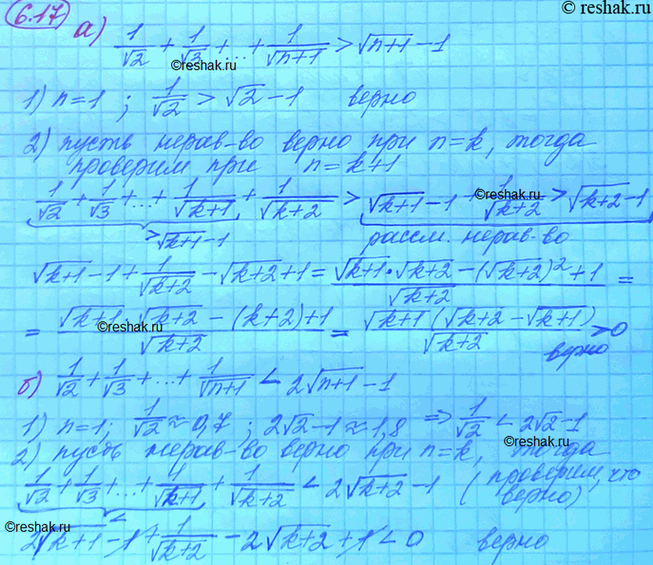 © reshak.ru
6.17 а)
1/√2 + 1/√3 + ... + 1/√(n+1) > √(n+1) − 1
©reshak.ru
1) n=1 ; 1/√2 > √2 − 1 верно
2) пусть нерав-во верно при n=k, тогда
проверим при n=k+1
1/√2 + 1/√3 + ... + 1/√(k+1) + 1/√(k+2) > √(k+1) − 1 + 1/√(k+2) > √(k+2) − 1
©reshak.ru
>√(k+1) − 1 рассм. нерав-во
√(k+1) − 1 + 1/√(k+2) − √(k+2) + 1 = (√(k+1) * √(k+2) − (√(k+2))² + 1)/√(k+2) =
= (√(k+1) · √(k+2) − (k+2) + 1)/√(k+2) = √(k+1)(√(k+2) − √(k+1))/√(k+2) > 0
©reshak.ru
верно
б) 1/√2 + 1/√3 + ... + 1/√(n+1) < 2√(n+1) − 1
1) n=1; 1/√2 ≈ 0,7 ; 2√2 − 1 ≈ 1,8 ⇒ 1/√2 < 2√2 − 1
2) пусть нерав-во верно при n=k, тогда
1/√2 + 1/√3 + ... + 1/√(k+1) + 1/√(k+2) < 2√(k+2) − 1 (проверим, что
верно)
<
2√(k+1) − 1 + 1/√(k+2) − 2√(k+2) + 1 < 0 верно
©reshak.ru
©reshak.ru